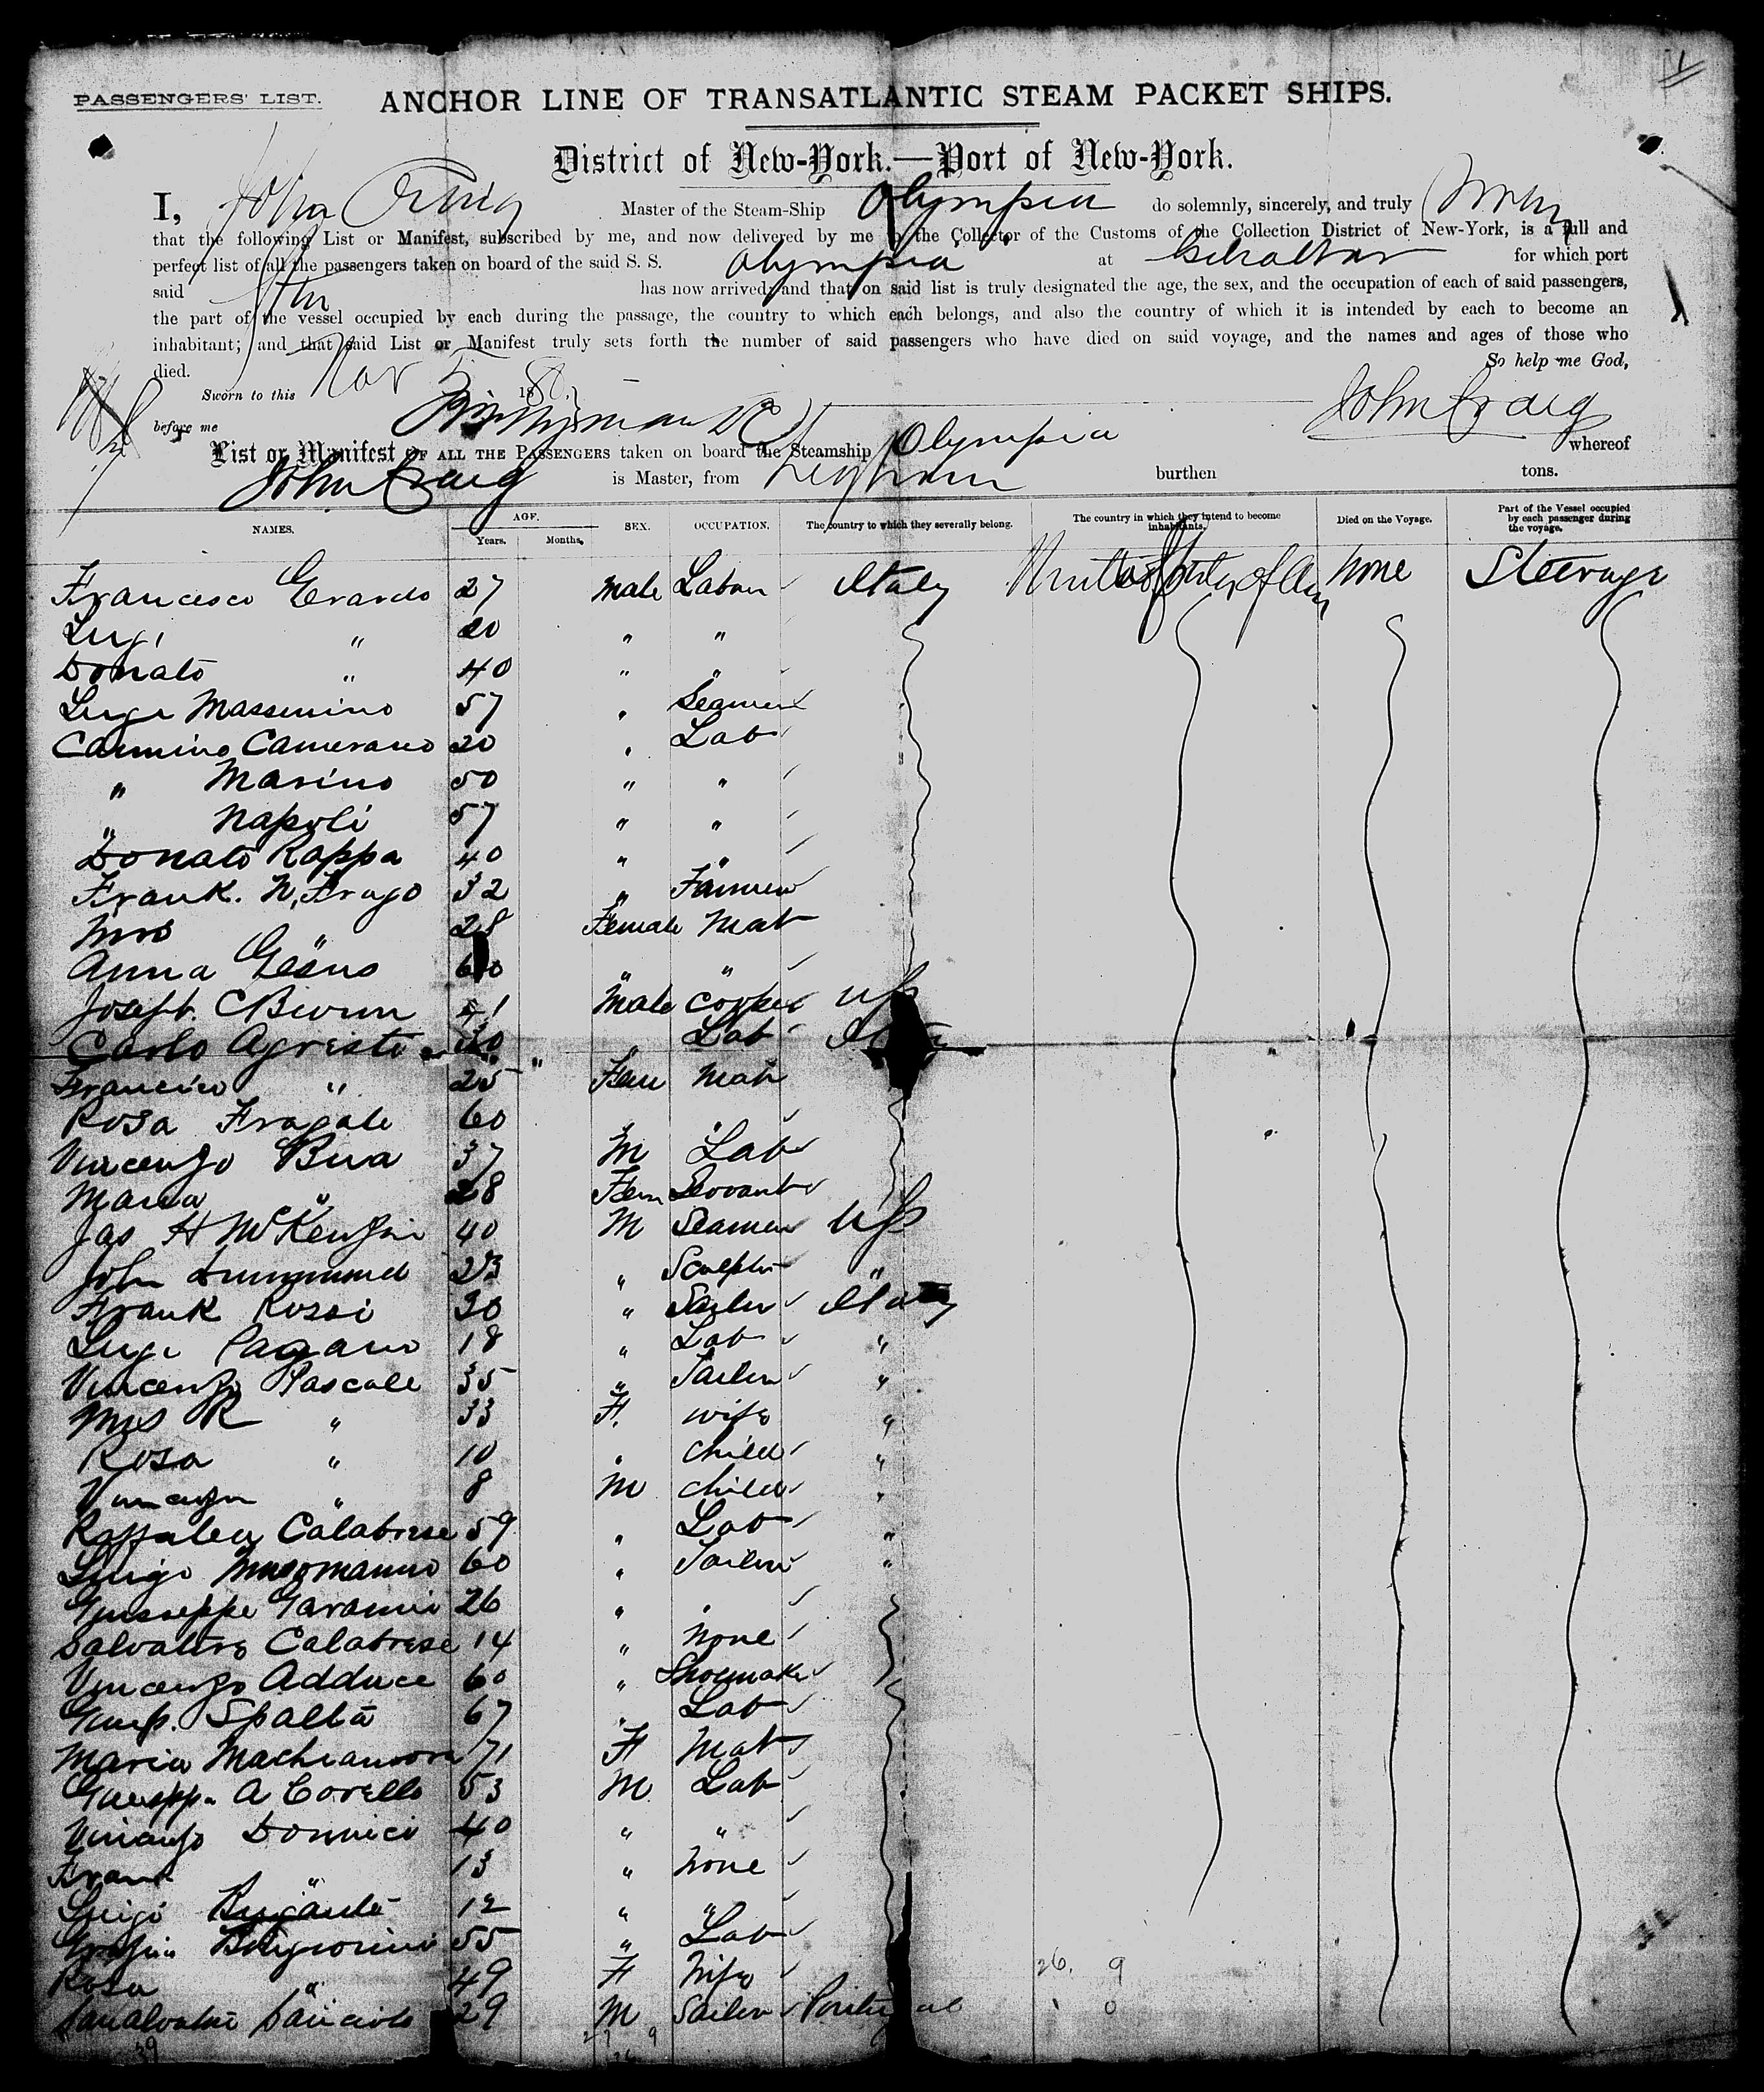 PASSENGERS' LIST.
ANCHOR LINE OF TRANSATLANTIC STEAM PACKET SHIPS.
District of New-York.—Port of New-York.
I, John Craig Master of the Steam-Ship Olympia do solemnly, sincerely, and truly
that the following List or Manifest, subscribed by me, and now delivered by me to the Collector of the Customs of the Collection District of New-York, is a full and
perfect list of all the passengers taken on board of the said S. S. Olympia at Gibraltar for which port
said has now arrived; and that on said list is truly designated the age, the sex, and the occupation of each of said passengers,
the part of the vessel occupied by each during the passage, the country to which each belongs, and also the country of which it is intended by each to become an
inhabitant; and that said List or Manifest truly sets forth the number of said passengers who have died on said voyage, and the names and ages of those who
died. So help me God,
Sworn to this Nov 5 18 John Craig
before me
List or Manifest OF ALL THE PASSENGERS taken on board the Steamship Olympia whereof
John Craig is Master, from Leghorn burthen tons.
NAMES. AGE. Years. Months. SEX. OCCUPATION. The country to which they severally belong. The country in which they intend to become inhabitants. Died on the Voyage. Part of the Vessel occupied by each passenger during the voyage.
Francesco Erardo 27 male Labor Italy None Steerage
Luigi " 20 " "
Donato " 40 " "
Luigi Massimino 57 " Seaman
Carmino Camerano 20 " Lab
" Marino 50 " "
" Napoli 57 " "
Donato Rappa 40 " "
Frank. N. Frugo 32 " Farmer
Mrs " 28 Female Mat
Anna 60 " "
Joseph. 41 Male Cooper US
Carlo Agresti 30 Lab Italy
Francisco " 25 " Fem Mat
Rosa Fragale 60 " "
Vincenzo Bua 37 M Lab
Maria " 28 Fem Servant
Jas H McKenzie 40 M Seaman US
John Drummond 23 " Sculptor "
Frank Rossi 30 " Sailor Italy
Luigi Pagano 18 " Lab "
Vincenzo Pascale 35 " Tailor "
Mrs R " 33 F. wife "
Rosa " 10 " child "
" 8 M child "
Calabrese 59 " Lab "
Luigi 60 " "
Giuseppe 26 " "
Salvatore Calabrese 14 " None
Vincenzo Adduce 60 " Shoemaker
Giusp. Spalta 67 " Lab
Maria 71 F Mat
A Corello 53 M Lab
Vincenzo Donnici 40 " "
Frank " 13 " None
Luigi 12 " "
55 " Lab
Rosa " 49 F Wife
29 M Sailor Portugal
26. 9
39